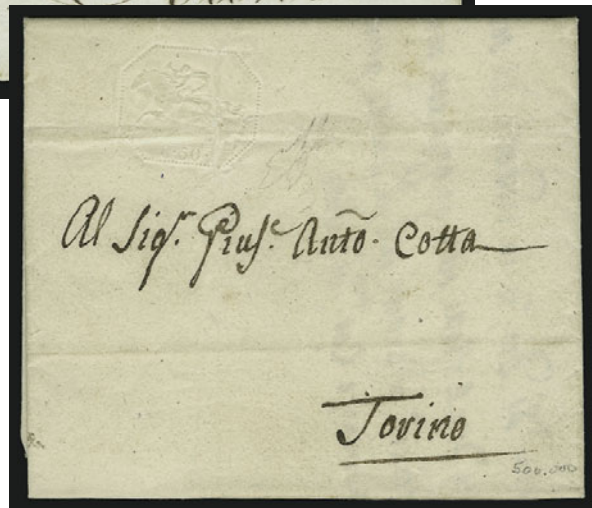 Al Sig.r Giuse. Anto. Cotta
Torino
500.000